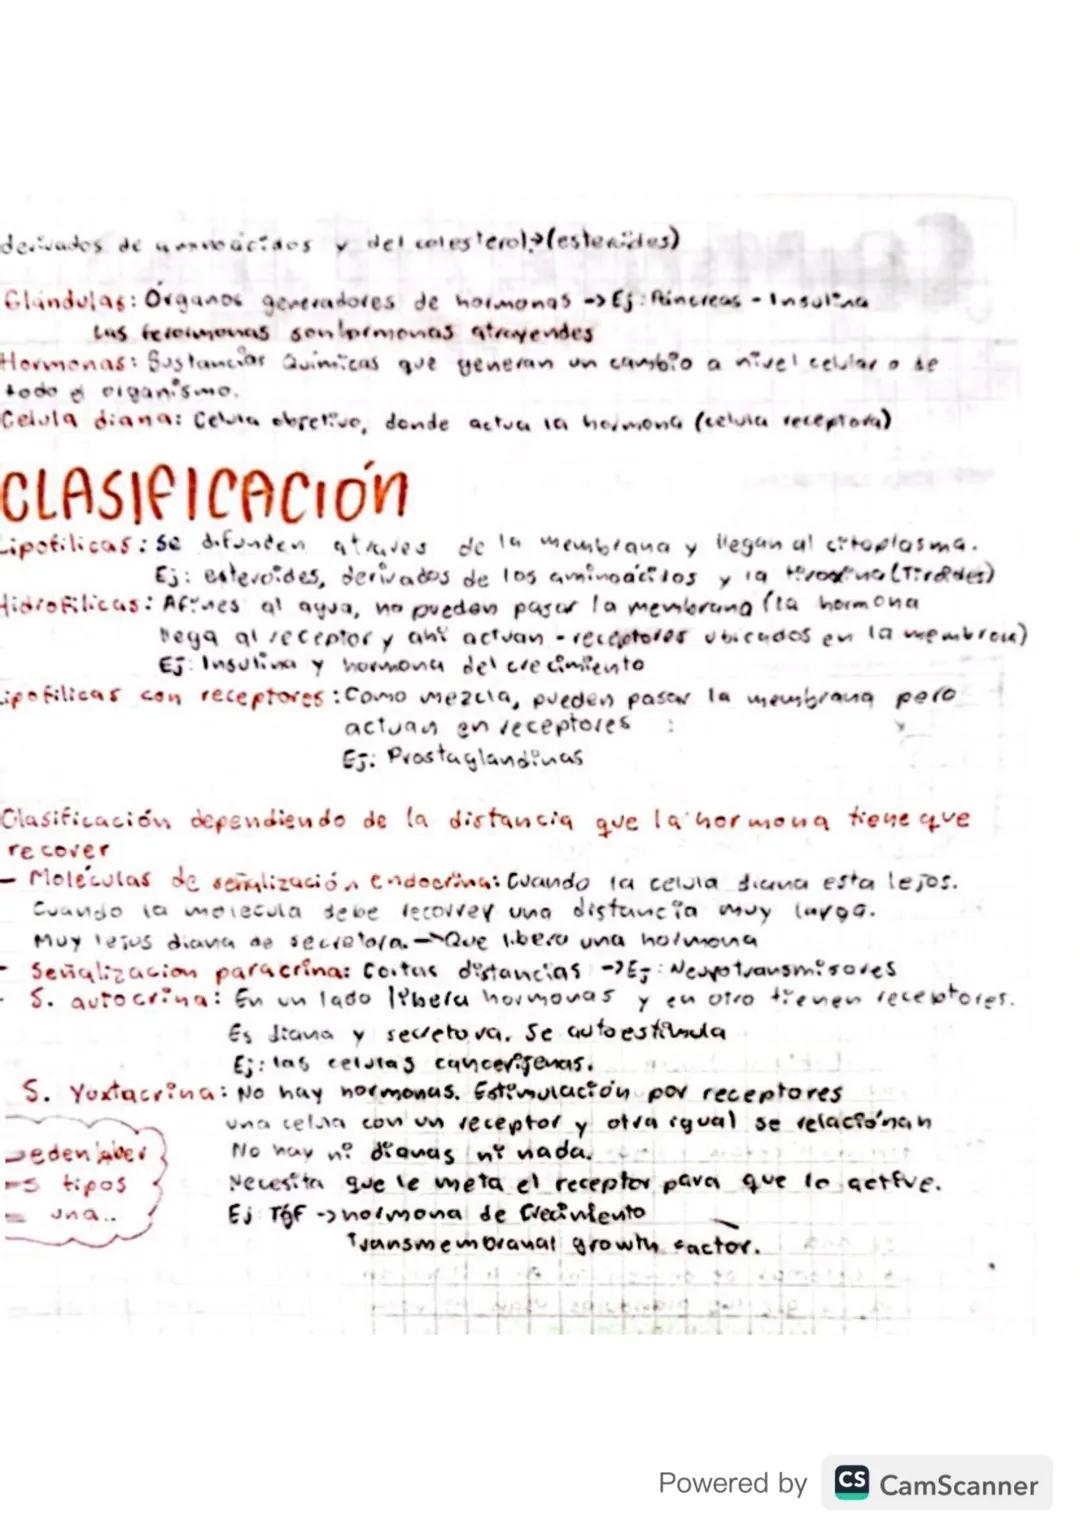 derivados de aminoácidos y del colesterol→(esteroides)
Glándulas: Órganos generadores de hormonas → Ej: Páncreas - Insulina
Las feromonas son hormonas atrayendes
Hormonas: Sustancias Químicas que generan un cambio a nivel celular o de
todo el organismo.
Celula diana: Celula objetivo, donde actua la hormona (celula receptora)
CLASIFICACIÓN
Lipofilicas: Se difunden atraves de la membrana y llegan al citoplasma.
Ej: esteroides, derivados de los aminoácidos y la tiroxina (Tiroides)
Hidrofilicas: Afines al agua, no pueden pasar la membrana (la hormona
llega al receptor y ahí actuan - receptores ubicados en la membrana)
Ej: Insulina y hormona del crecimiento
Lipofilicas con receptores: Como mezcla, pueden pasar la membrana pero
actuan en receptores
Ej: Prostaglandinas
Clasificación dependiendo de la distancia que la hormona tiene que
recorer
- Moléculas de señalización endocrina: Cuando la celula diana esta lejos.
Cuando la molecula debe recorrer una distancia muy larga.
Muy lejos diana de secretora. → Que libero una hormona
- Señalizacion paracrina: Cortas distancias → Ej: Neurotransmisores
- S. autocrina: En un lado libera hormonas y en otro tienen receptores.
Es diana y secretora. Se autoestimula
Ej: las celulas cancerigenas.
S. Yuxtacrina: No hay hormonas. Estimulación por receptores
una celula con un receptor y otra igual se relaciónan
No hay ni dianas ni nada.
Necesita que le meta el receptor para que lo active.
Ej TGF → hormona de Crecimiento
Transmembranal growth factor.
eden aber
s tipos
una..
Powered by CS CamScanner